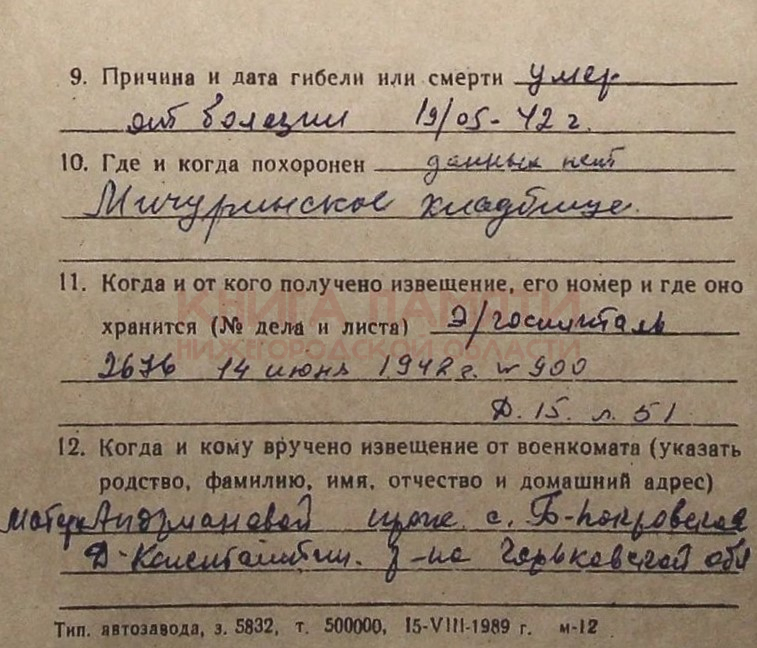 9. Причина и дата гибели или смерти умер
от болезни 19/05-42 г.
10. Где и когда похоронен данных нет
Мичуринское кладбище.
11. Когда и от кого получено извещение, его номер и где оно
КНИГА ПАМЯТИ
хранится (№ дела и листа) Э/госпиталь
НИЖЕГОРОДСКОЙ ОБЛАСТИ
2676 14 июня 1942 г. № 900
Д. 15. л. 51
12. Когда и кому вручено извещение от военкомата (указать
родство, фамилию, имя, отчество и домашний адрес)
Матери Андриановой прож. с. Б-Покровское
Д-Константин. р-на Горьковской обл
Тип. автозавода, з. 5832, т. 500000, 15-VIII-1989 г. м-12